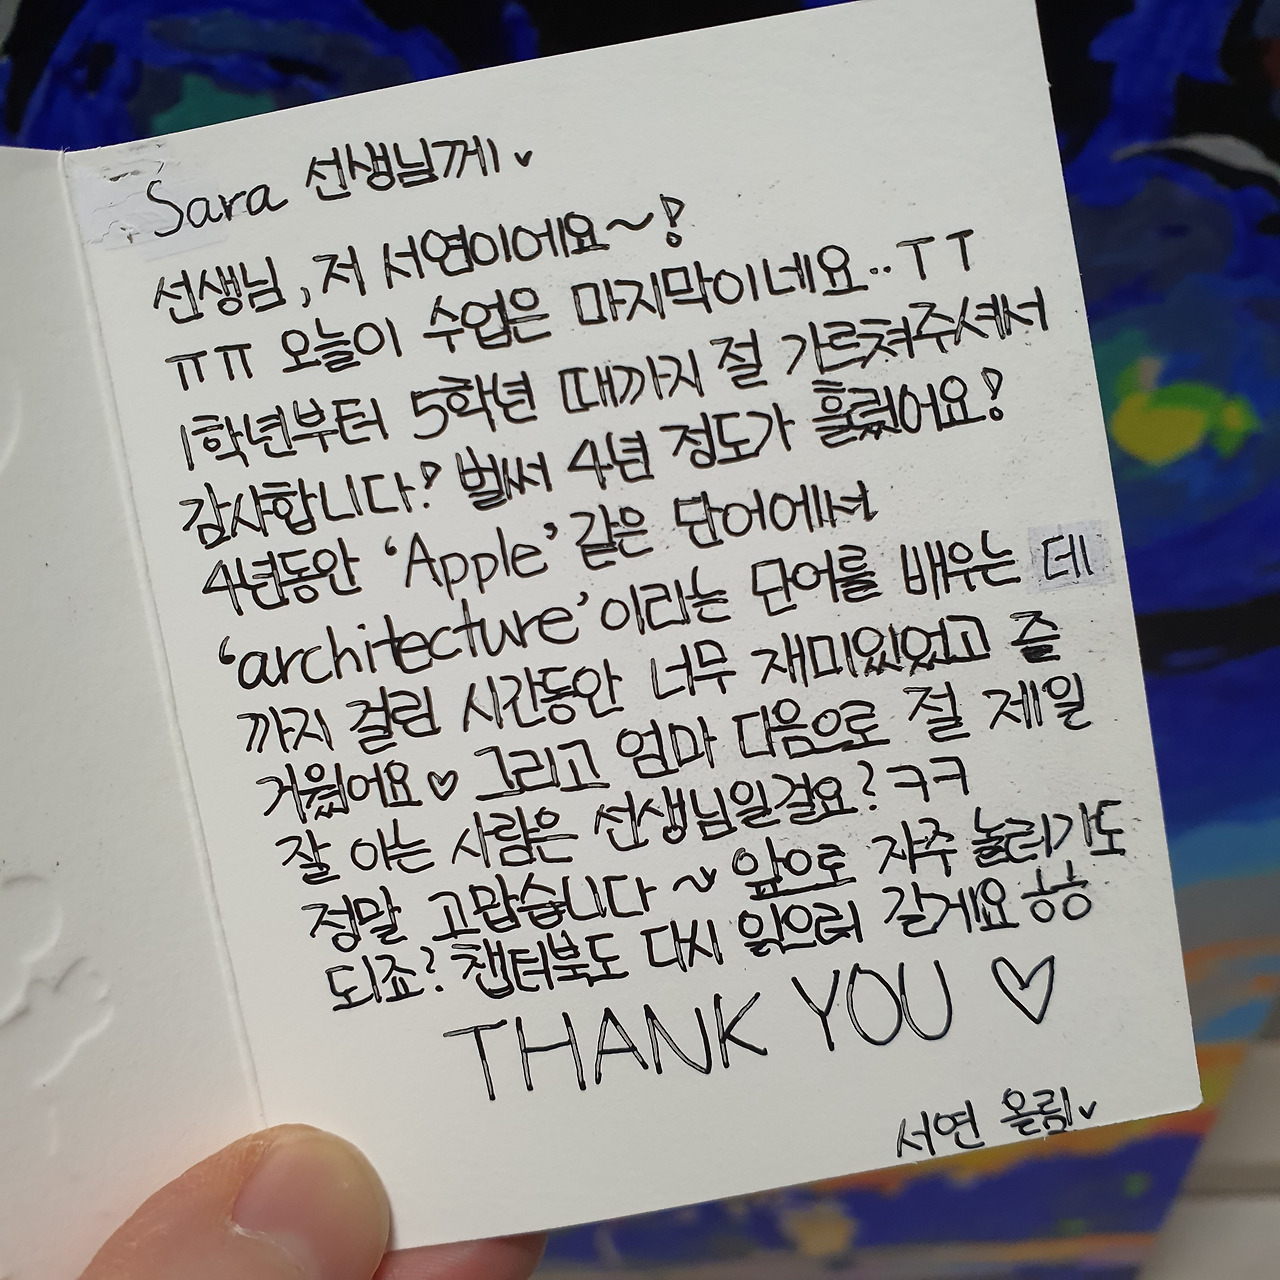 Sara 선생님께♥
선생님, 저 서연이에요~!
ㅠㅠ 오늘이 수업은 마지막이네요.. ㅜㅜ
1학년부터 5학년 때까지 절 가르쳐주셔서
감사합니다! 벌써 4년 정도가 흘렀어요!
4년동안 'Apple' 같은 단어에서
'architecture'이라는 단어를 배우는 데
까지 걸린 시간동안 너무 재미있었고 즐
거웠어요♡ 그리고 엄마 다음으로 절 제일
잘 아는 사람은 선생님일걸요? ㅋㅋ
정말 고맙습니다~ 앞으로 자주 놀러가도
되죠? 챕터북도 다시 읽으러 갈게요 ㅎㅎ
THANK YOU ♡
서연 올림♥